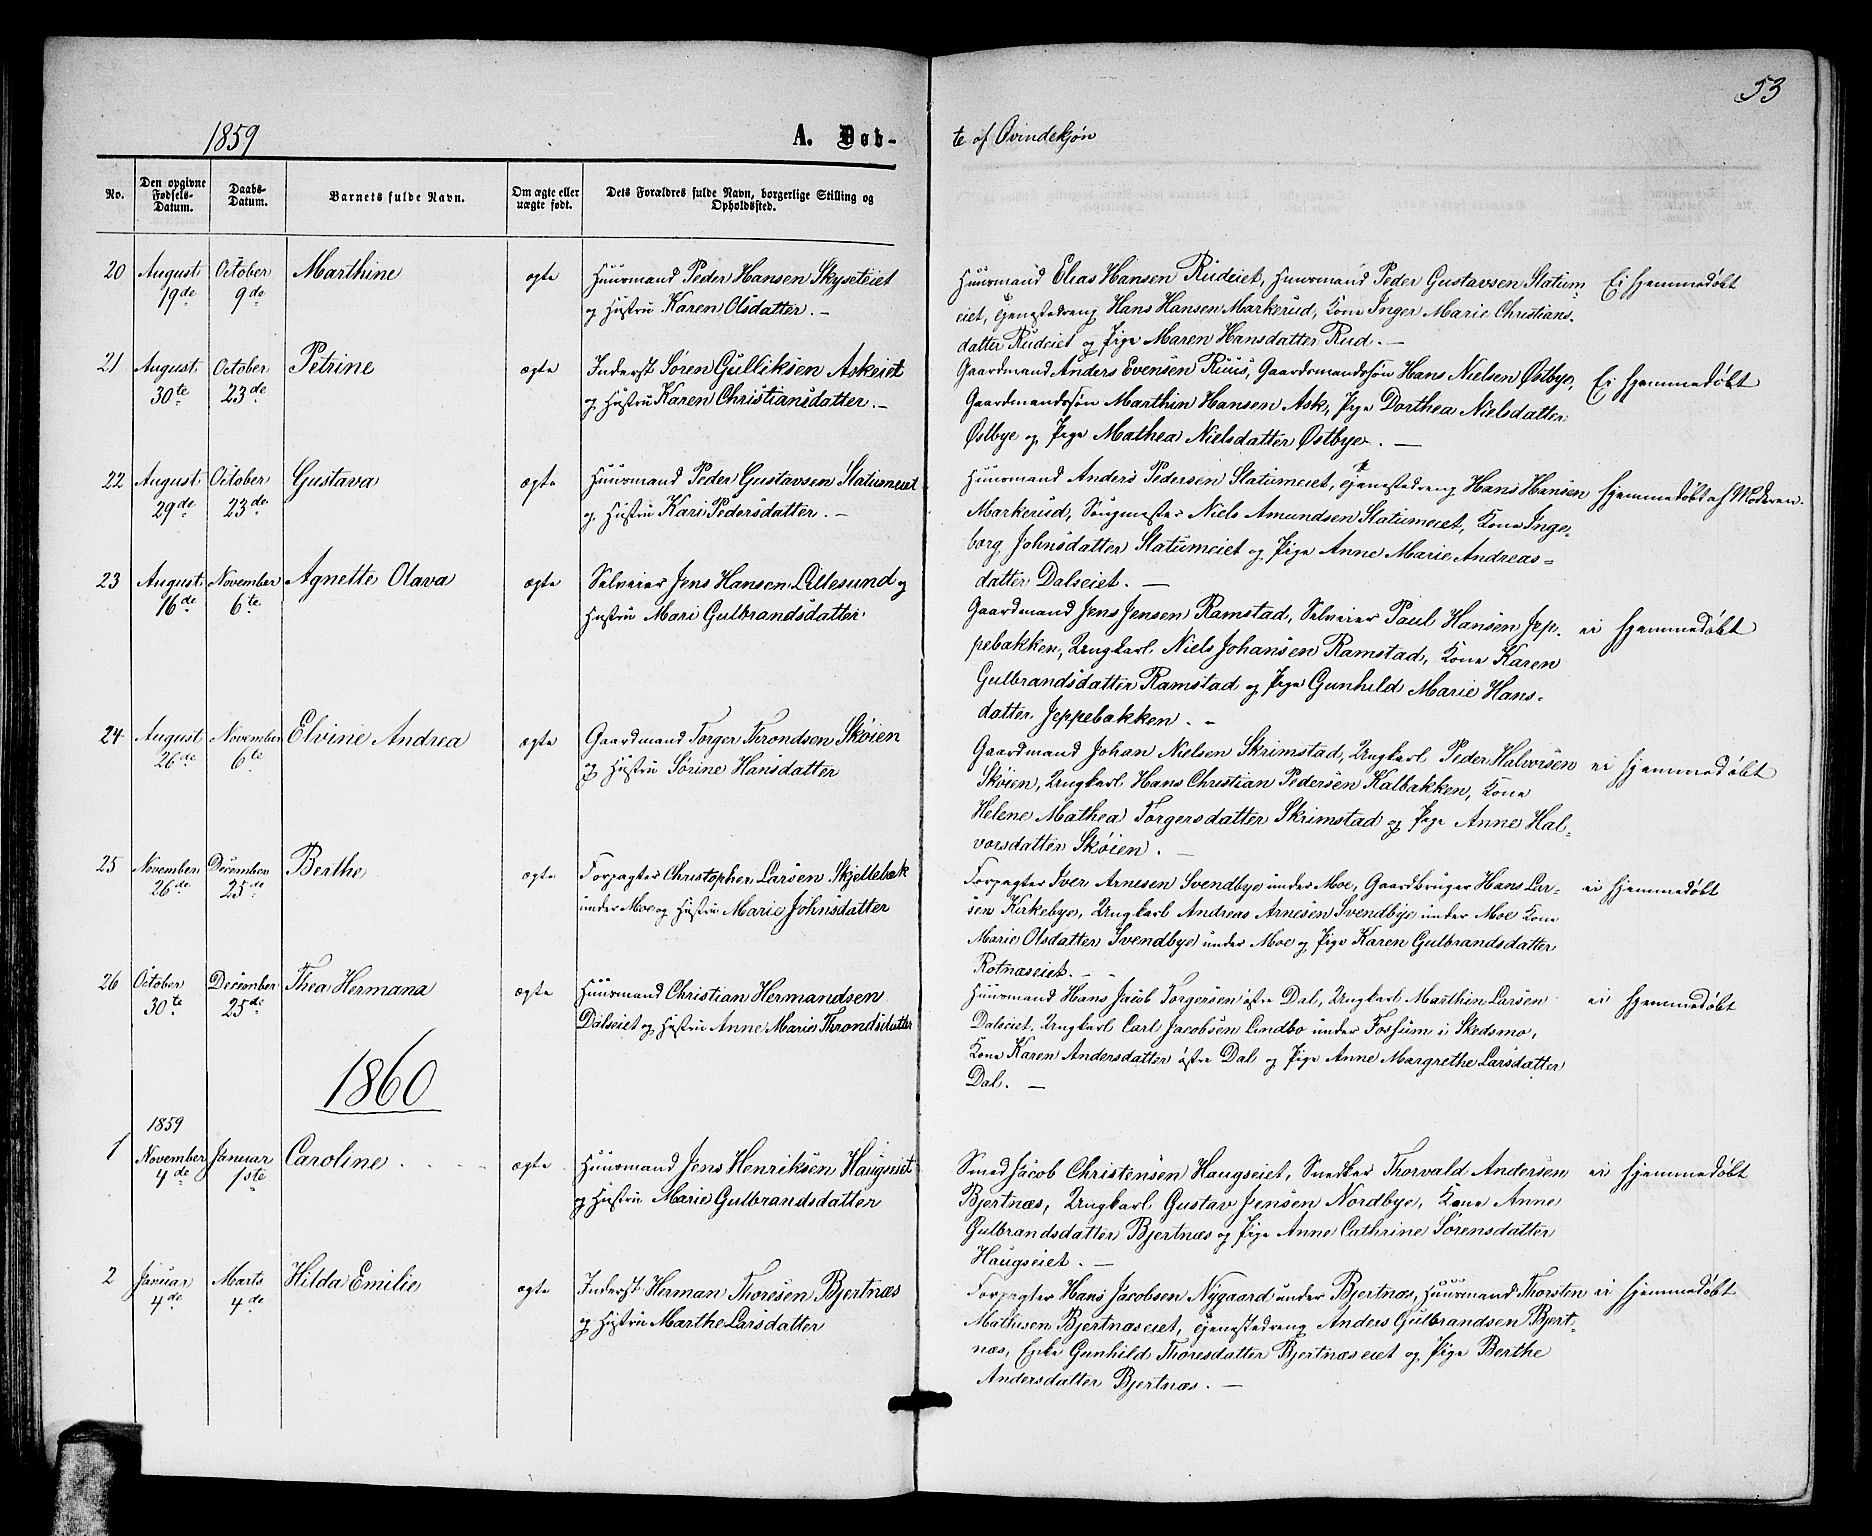 53
1859
A. Døb-
te af Qvindekjøn
No.
Den opgivne Fødsels-Datum.
Daabs-Datum.
Barnets fulde Navn.
Om ægte eller uægte født.
Dets Forældres fulde Navn, borgerlige Stilling og Opholdssted.
20 August 19de October 9de Marthine ægte
Huusmand Peder Hansen Skyseteiet
og Hustru Karen Olsdatter. –
Huusmand Elias Hansen Rudeiet, Huusmand Peder Gustavsen Slatum-
eiet, Tjenestedreng Hans Hansen Markerud, Kone Inger Marie Christians-
datter Rudeiet og Pige Maren Hansdatter Rud. –
Ei hjemmedøbt
21 August 30te October 23de Petrine ægte
Inderst Søren Gulliksen Askeiet
og Hustru Karen Christiansdatter. –
Gaardmand Anders Evensen Ruus, Gaardmandssøn Hans Nielsen Østbye,
Gaardmandssøn Marthin Hansen Ask, Pige Dorthea Nielsdatter
Østbye og Pige Mathea Nielsdatter Østbye. –
Ei hjemmedøbt
22 August 29de October 23de Gustava ægte
Huusmand Peder Gustavsen Slatumeiet
og Hustru Kari Pedersdatter. –
Huusmand Anders Pedersen Slatumeiet, Tjenestedreng Hans Hansen
Markerud, Saugmester Niels Amundsen Slatumeiet, Kone Inge-
borg Johnsdatter Slatumeiet og Pige Anne Marie Andreas-
datter Dalseiet. –
hjemmedøbt af Moderen.
23 August 16de November 6te Agnette Olava ægte
Selveier Jens Hansen Lillesund og
Hustru Mari Gulbrandsdatter.
Gaardmand Jens Jensen Ramstad, Selveier Paul Hansen Jep-
pebakken, Ungkarl Niels Johansen Ramstad, Kone Karen
Gulbrandsdatter Ramstad og Pige Gunhild Marie Hans-
datter Jeppebakken. –
ei hjemmedøbt
24 August 26de November 6te Elvine Andrea ægte
Gaardmand Torger Throndsen Skøien
og Hustru Sørine Hansdatter
Gaardmand Johan Nielsen Skrimstad, Ungkarl Peder Halvorsen
Skøien, Ungkarl Hans Christian Pedersen Kalbakken, Kone
Helene Mathea Torgersdatter Skrimstad og Pige Anne Hal-
vorsdatter Skøien. –
ei hjemmedøbt
25 November 26de December 25de Berthe ægte
Forpagter Christopher Larsen Skjellebæk
under Moe og Hustru Marie Johnsdatter
Forpagter Iver Arnesen Svendbye under Moe, Gaardbruger Hans Lar-
sen Kirkebye, Ungkarl Andreas Arnesen Svendbye under Moe Kone
Marie Olsdatter Svendbye under Moe og Pige Karen Gulbrandsdatter
Rotnæseiet. –
ei hjemmedøbt
26 October 30te December 25de Thea Hermana ægte
Huusmand Christian Hermandsen
Dalseiet og Hustru Anne Marie Throndsdatter
Huusmand Hans Jacob Torgersen østre Dal, Ungkarl Marthin Larsen
Dalseiet, Ungkarl Carl Jacobsen Lindbo under Fossum i Skedsmo,
Kone Karen Andersdatter østre Dal og Pige Anne Margrethe Larsdatter
Dal. –
ei hjemmedøbt
1860
1 1859 November 4de Januar 1ste Caroline ægte
Huusmand Jens Henriksen Haugseiet
og Hustru Marie Gulbrandsdatter
Smed Jacob Christensen Haugseiet, Snedker Thorvald Andersen
Bjertnæs, Ungkarl Gustav Jensen Nordbye, Kone Anne
Gulbrandsdatter Bjertnæs og Pige Anne Cathrine Sørensdatter
Haugseiet. –
ei hjemmedøbt
2 Januar 4de Marts 4de Hilda Emilie ægte
Inderst Herman Thoresen Bjertnæs
og Hustru Marthe Larsdatter
Forpagter Hans Jacobsen Nygaard under Bjertnæs, Huusmand Thorsten
Mathisen Bjertnæseiet, Tjenestedreng Anders Gulbrandsen Bjert-
næs, Enke Gunhild Thoresdatter Bjertnæseiet og Pige Berthe
Andersdatter Bjertnæs. –
ei hjemmedøbt